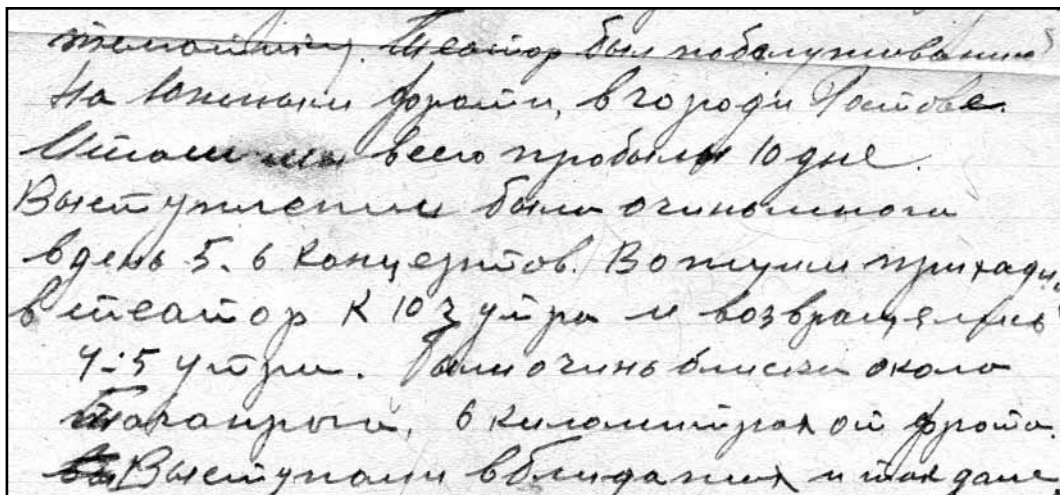 Театор был по обслуживанию
На Южным фронти, в городи Ростове.
Итак мы всего пробыли 10 дне.
Выступлении были очинь много
в день 5. 6 концертов. В
в театор к 10 з утра и возвращялись
4-5 утра. Были очинь близка около
Таганрога, 6 километрах от фронта.
Выступали в блиндажах и так дале